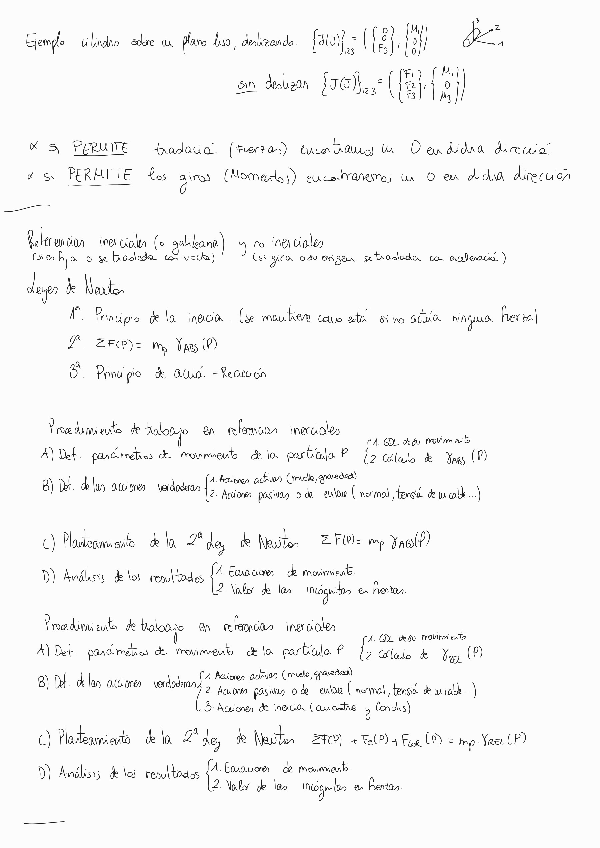 Ejemplo cilindro sobre un plano liso, deslizando {J(J)}₁₂₃ = ({0 0 F₃}, {M₁ 0 0})
sin deslizar {J(J)}₁₂₃ = ({F₁ F₂ F₃}, {M₁ 0 M₃})
* Si PERMITE traslació (Fuerzas) encontramos un 0 en dicha direcció
* Si PERMITE los giros (Momentos) encontraremos un 0 en dicha dirección
Referencias inerciales (o galileana) y no inerciales
(si gira o su origen se traslada con aceleració)
Leyes de Newton
1ª. Principio de la inercia (se mantiene como está si no actúa ninguna fuerza)
2ª ΣF(P) = mp γABS(P)
3ª. Principio de acció - Reacción
Procedimiento de trabajo en referencias inerciales
A) Def. parámetros de movimiento de la partícula P { 1. GDL de su movimiento
2 Cálculo de γABS (P)
B) Def. de las acciones verdaderas { 1. Acciones activas (muelle, gravedad)
2. Acciones pasivas o de enlace (normal, tensió de un cable...)
C) Planteamiento de la 2ª Ley de Newton ΣF(P) = mp γABS(P)
D) Análisis de los resultados { 1. Ecuaciones de movimiento.
2 Valor de las incógnitas en fuerzas.
Procedimiento de trabajo en referencias inerciales
A) Def parámetros de movimiento de la partícula P { 1. GDL de su movimiento
2 Cálculo de γREL (P)
B) Def. de las acciones verdaderas { 1 Acciones activas (muelle, gravedad)
2 Acciones pasivas o de enlace (normal, tensió de un cable)
3 Acciones de inercia (arrastre y Coriolis)
C) Planteamiento de la 2ª Ley de Newton ΣF(P) + Far(P) + Fcor (P) = mp γREL (P)
D) Análisis de los resultados { 1. Ecuaciones de movimiento
2. Valor de las incógnitas en fuerzas.